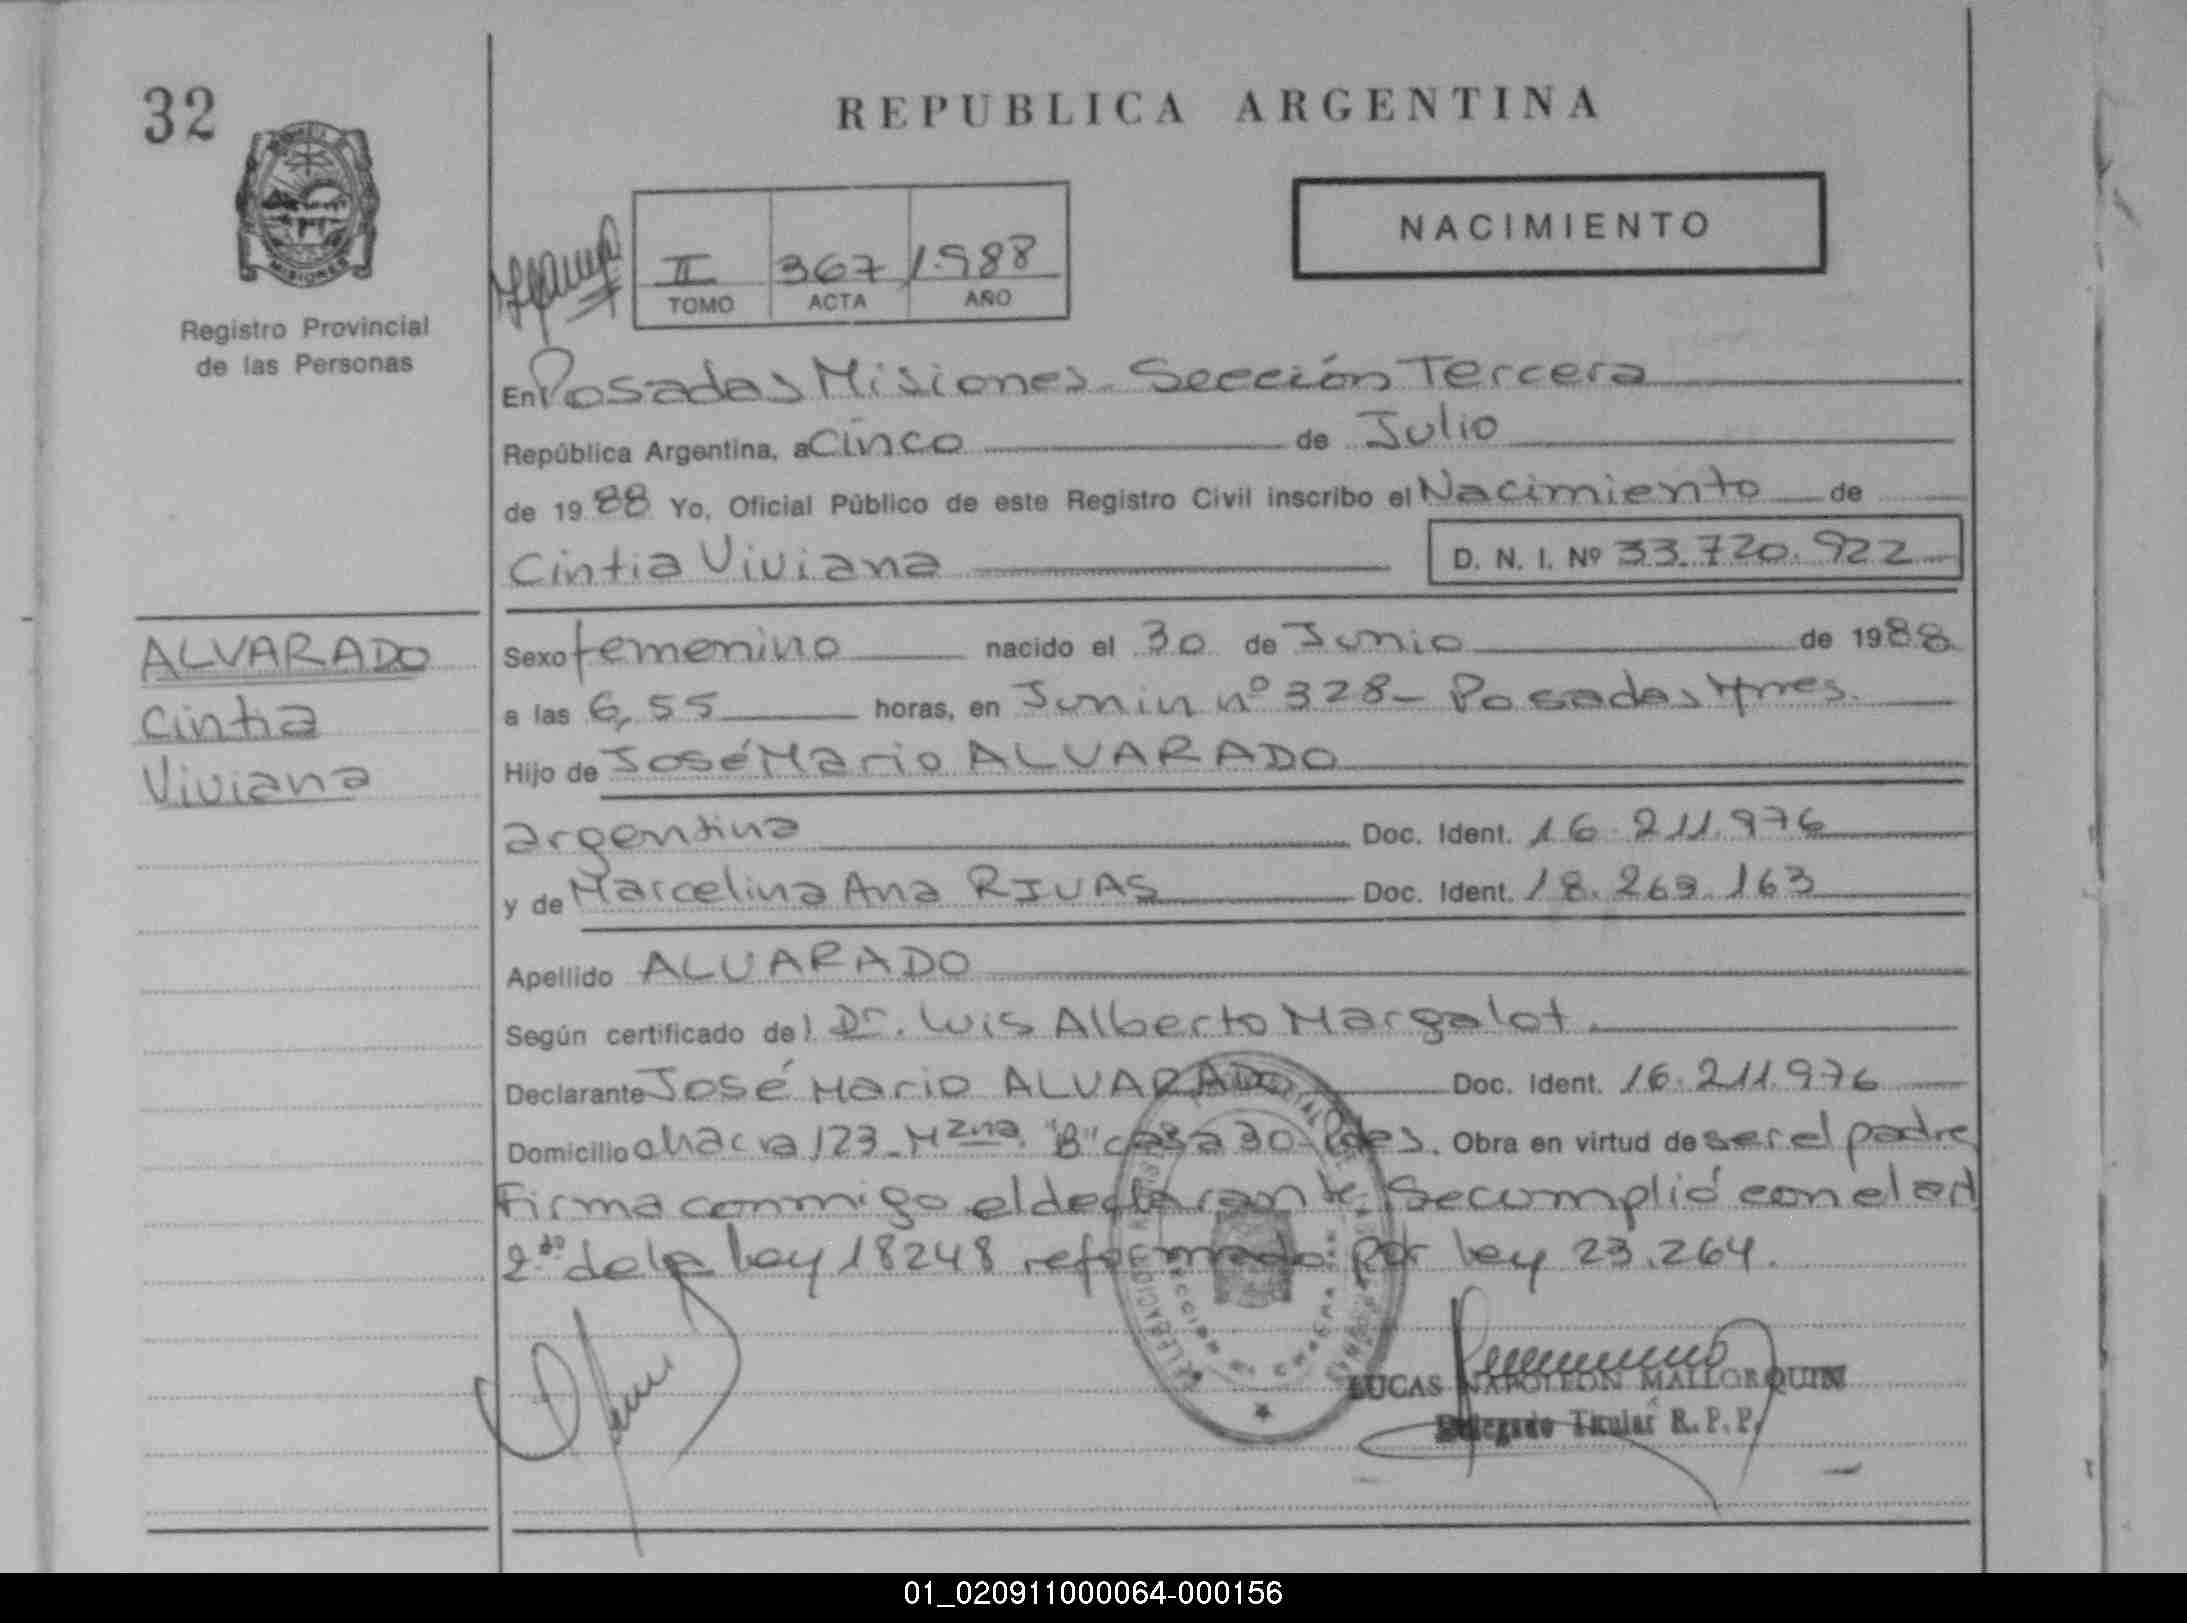 32
REPUBLICA ARGENTINA
MISIONES
Registro Provincial
de las Personas
II 367 1988
TOMO ACTA AÑO
NACIMIENTO
En Posadas Misiones Sección Tercera
República Argentina, a Cinco de Julio
de 1988 Yo, Oficial Público de este Registro Civil inscribo el Nacimiento de
Cintia Viviana D. N. I. Nº 33.720.922
ALVARADO
Cintia
Viviana
Sexo femenino nacido el 30 de Junio de 1988
a las 6,55 horas, en Junin nº 328 - Posadas Mnes.
Hijo de José Mario ALVARADO
argentina Doc. Ident. 16.211.976
y de Marcelina Ana RIVAS Doc. Ident. 18.269.163
Apellido ALVARADO
Según certificado del Dr. Luis Alberto Margalot.
Declarante José Mario ALVARADO Doc. Ident. 16.211.976
Domicilio chacra 123 - Mzna. "B" casa 30 - Pdas. Obra en virtud de ser el padre
Firma conmigo el declarante. Se cumplió con el art
2do de la Ley 18248 reformado por Ley 23.264.
LUCAS NAPOLEON MALLORQUIN
Delegado Titular R.P.P.
01_020911000064-000156